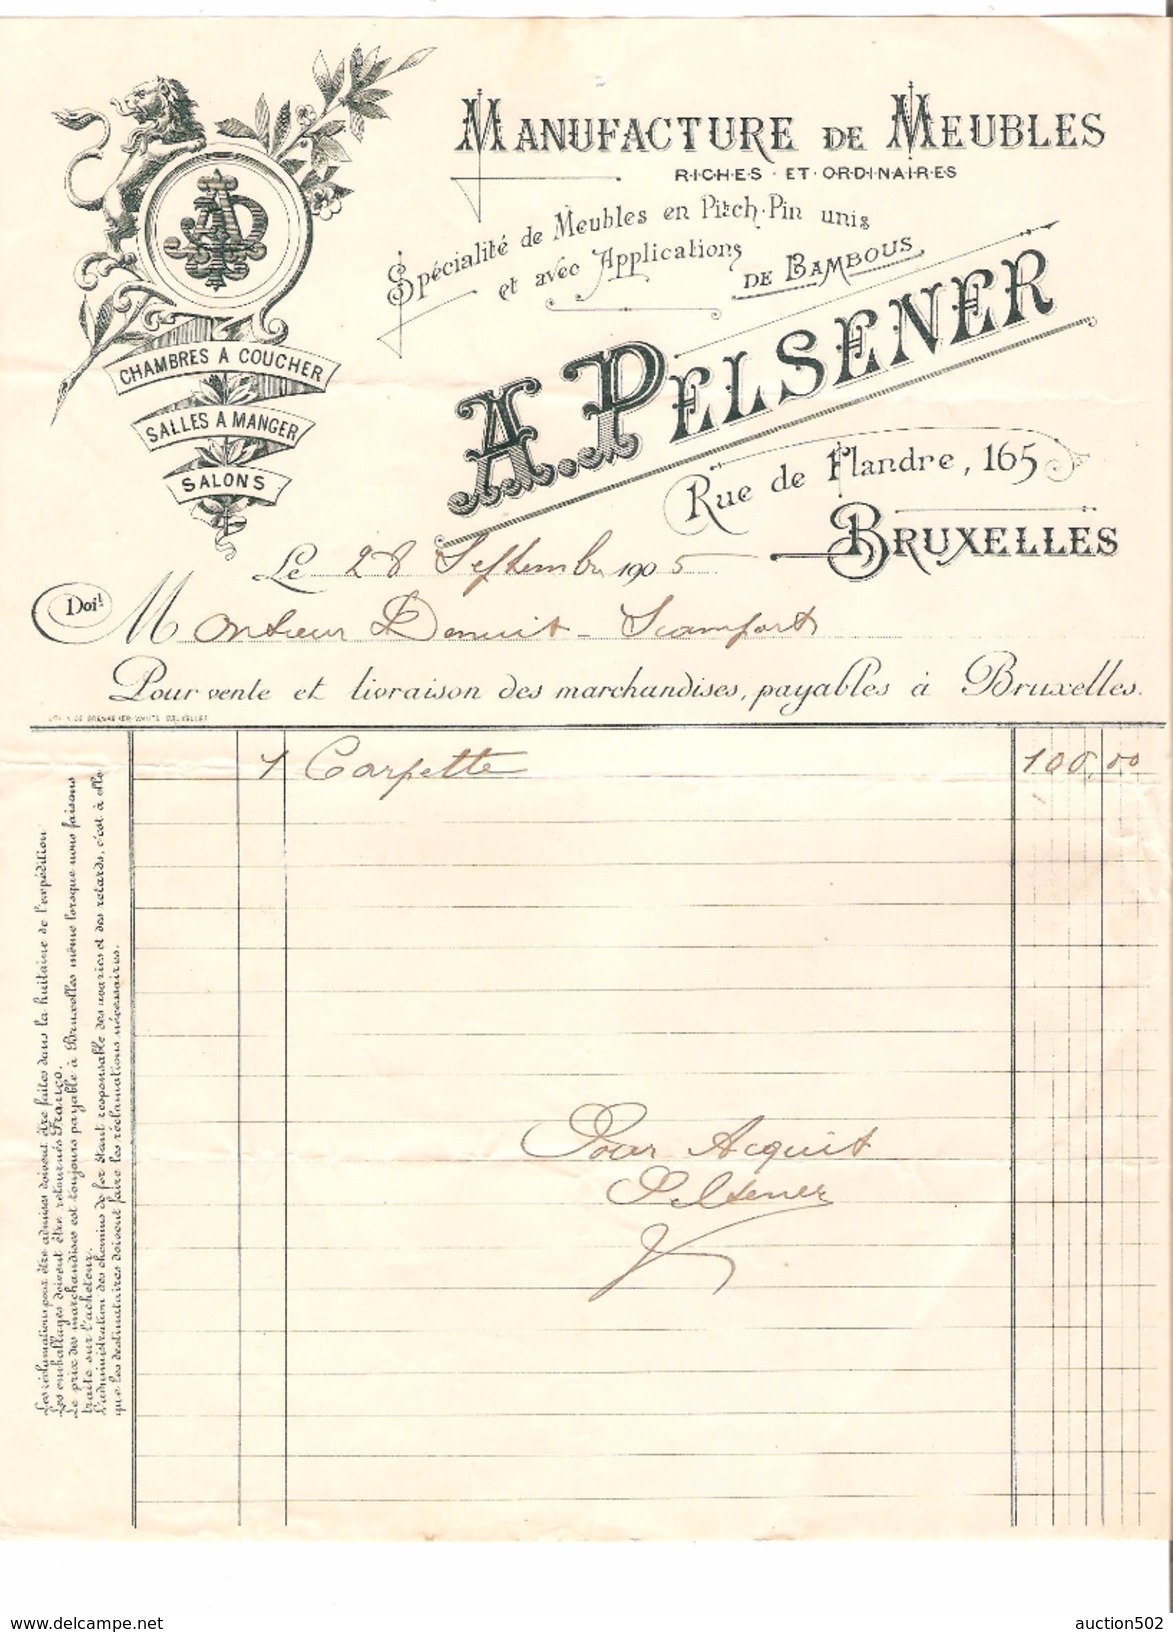 MANUFACTURE DE MEUBLES
RICHES ET ORDINAIRES
Spécialité de Meubles en Pitch-Pin unis
et avec Applications
DE BAMBOUS
A. PELSENER
Rue de Flandre, 165
BRUXELLES
AP
CHAMBRES A COUCHER
SALLES A MANGER
SALONS
Le 28 Septembre 1905
Doit Monsieur Denuit-Scamfort
Pour vente et livraison des marchandises, payables à Bruxelles.
1 Carpette 100,00
Pour Acquit
Pelsener
Les réclamations pour être admises doivent être faites dans la huitaine de l'expédition
Les emballages doivent être retournés Franco.
Le prix des marchandises est toujours payable à Bruxelles même lorsque nous faisons
traite sur l'acheteur.
L'administration des chemins de fer étant responsable des avaries et des retards, c'est à elle
que les destinataires doivent faire les réclamations nécessaires.
www.delcampe.net
auction502